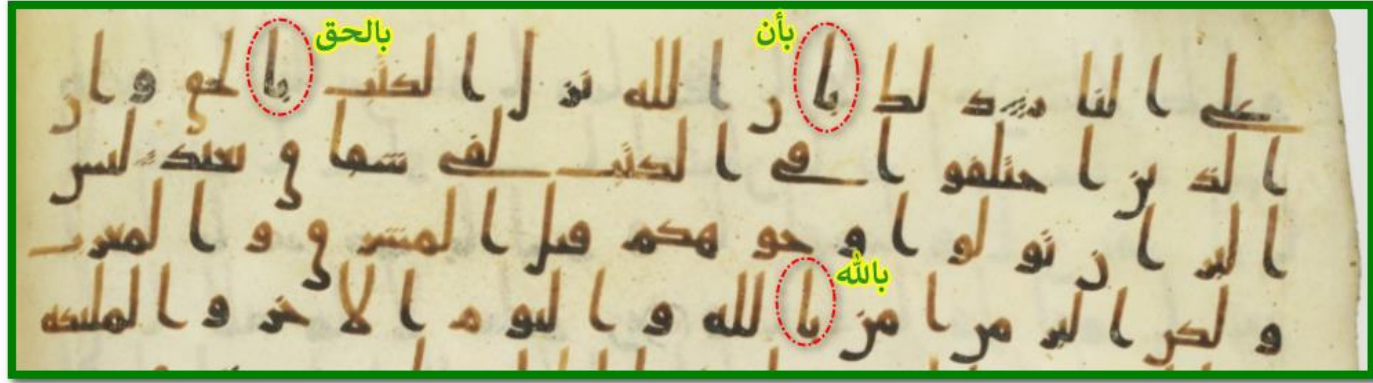 بأن بالحق
على النار ذلك بان الله نزل الكتب بالحق وان
الذين اختلفوا في الكتب لفي شقاق بعيد ليس
البر ان تولوا وجوهكم قبل المشرق والمغرب
بالله
ولكن البر من امن بالله واليوم الاخر والملئكه